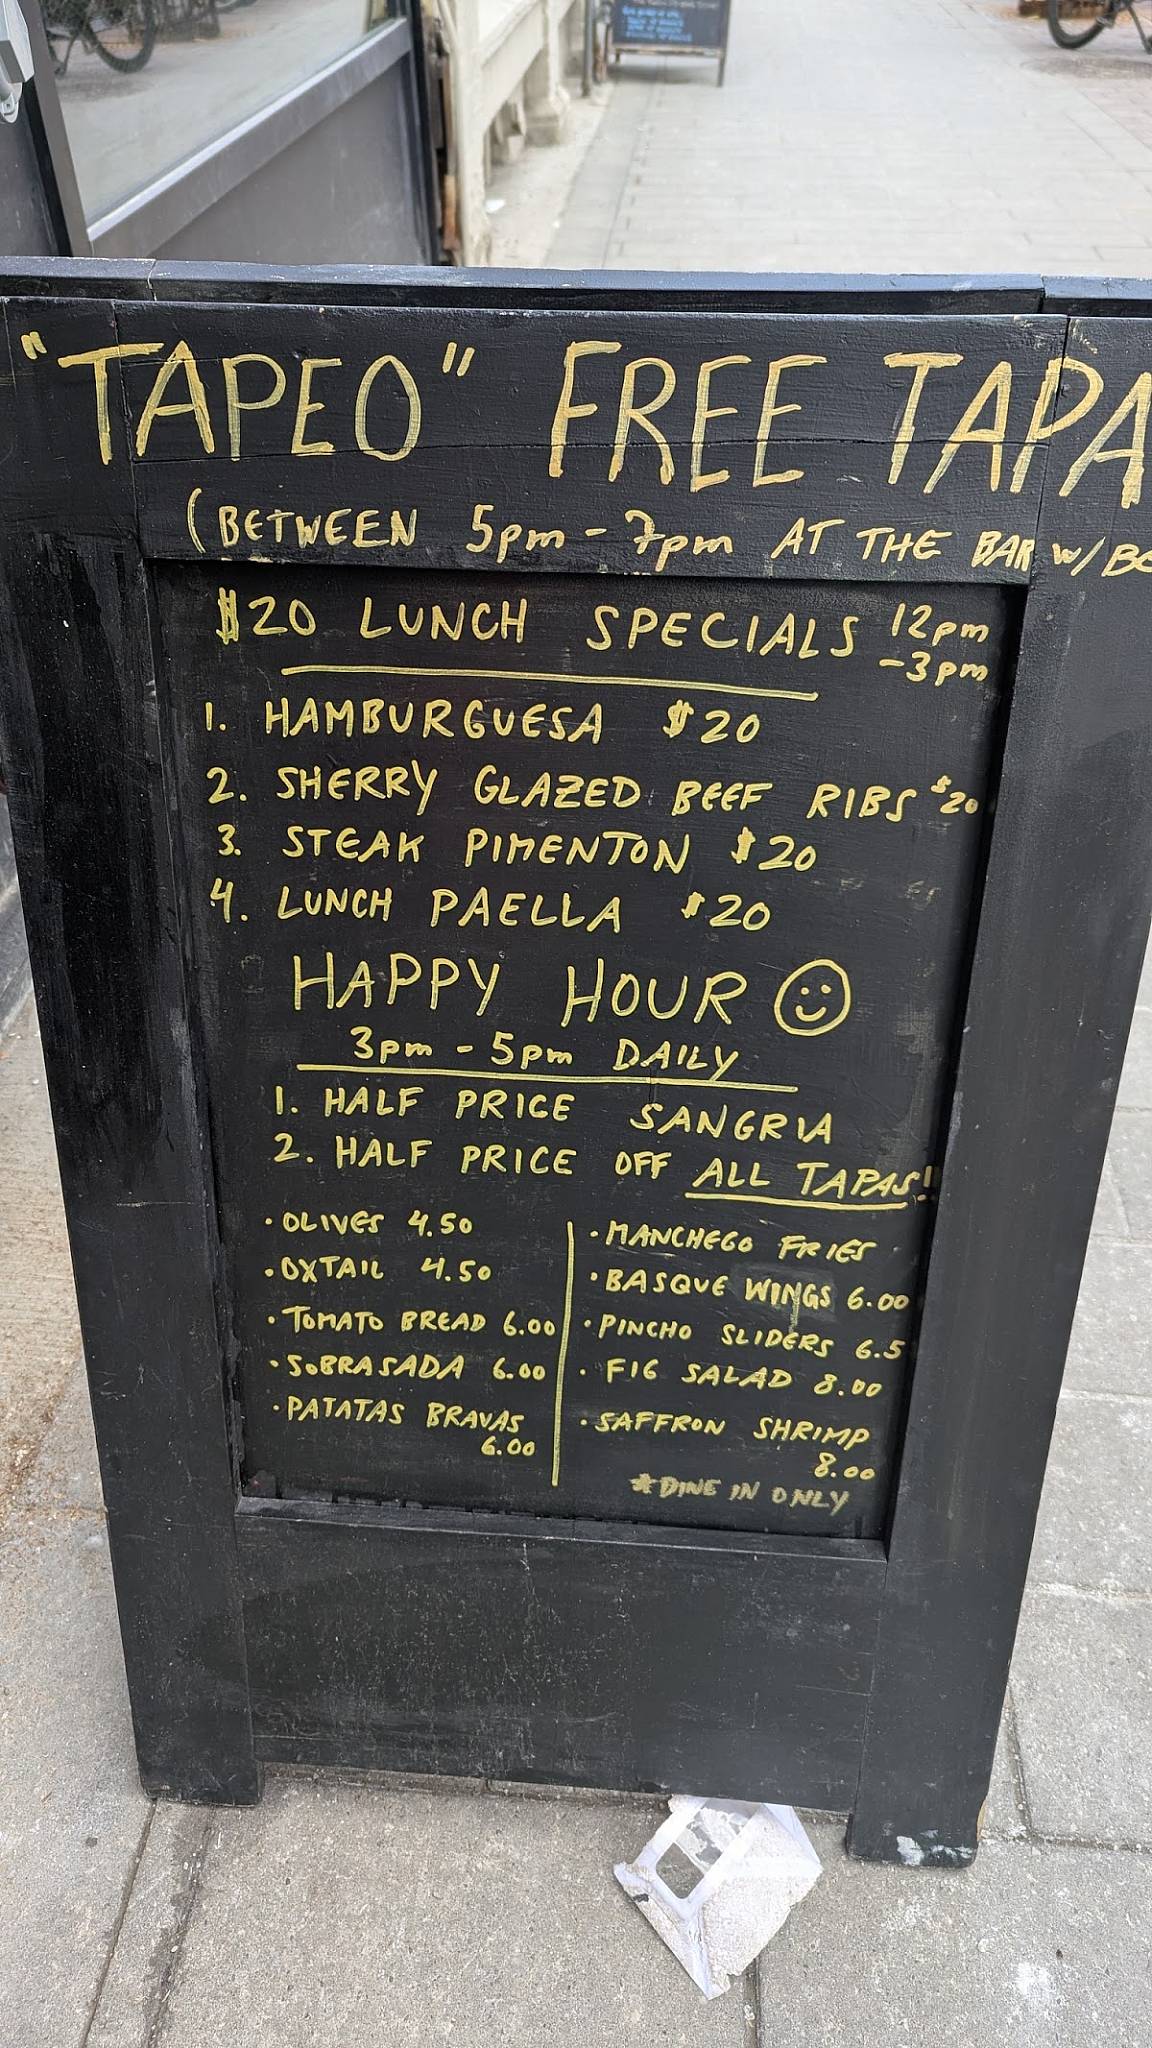 "TAPEO" FREE TAPA
(BETWEEN 5pm - 7pm AT THE BAR w/
$20 LUNCH SPECIALS 12pm
-3pm
1. HAMBURGUESA $20
2. SHERRY GLAZED BEEF RIBS $20
3. STEAK PIMENTON $20
4. LUNCH PAELLA $20
HAPPY HOUR
3pm - 5pm DAILY
1. HALF PRICE SANGRIA
2. HALF PRICE OFF ALL TAPAS!!
· OLIVES 4.50
· OXTAIL 4.50
· TOMATO BREAD 6.00
· SOBRASADA 6.00
· PATATAS BRAVAS
6.00
· MANCHEGO FRIES
· BASQUE WINGS 6.00
· PINCHO SLIDERS 6.5
· FIG SALAD 8.00
· SAFFRON SHRIMP
8.00
* DINE IN ONLY